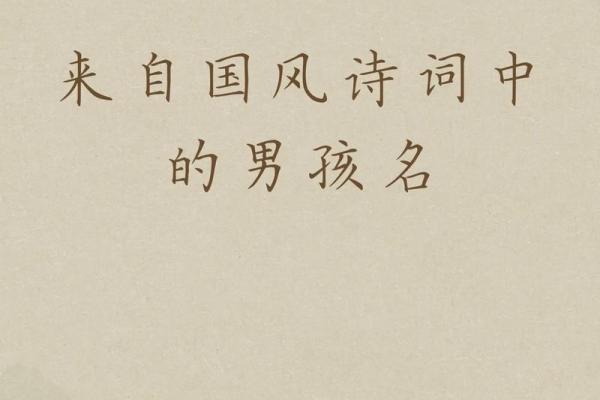 来自国风诗词中
的男孩名